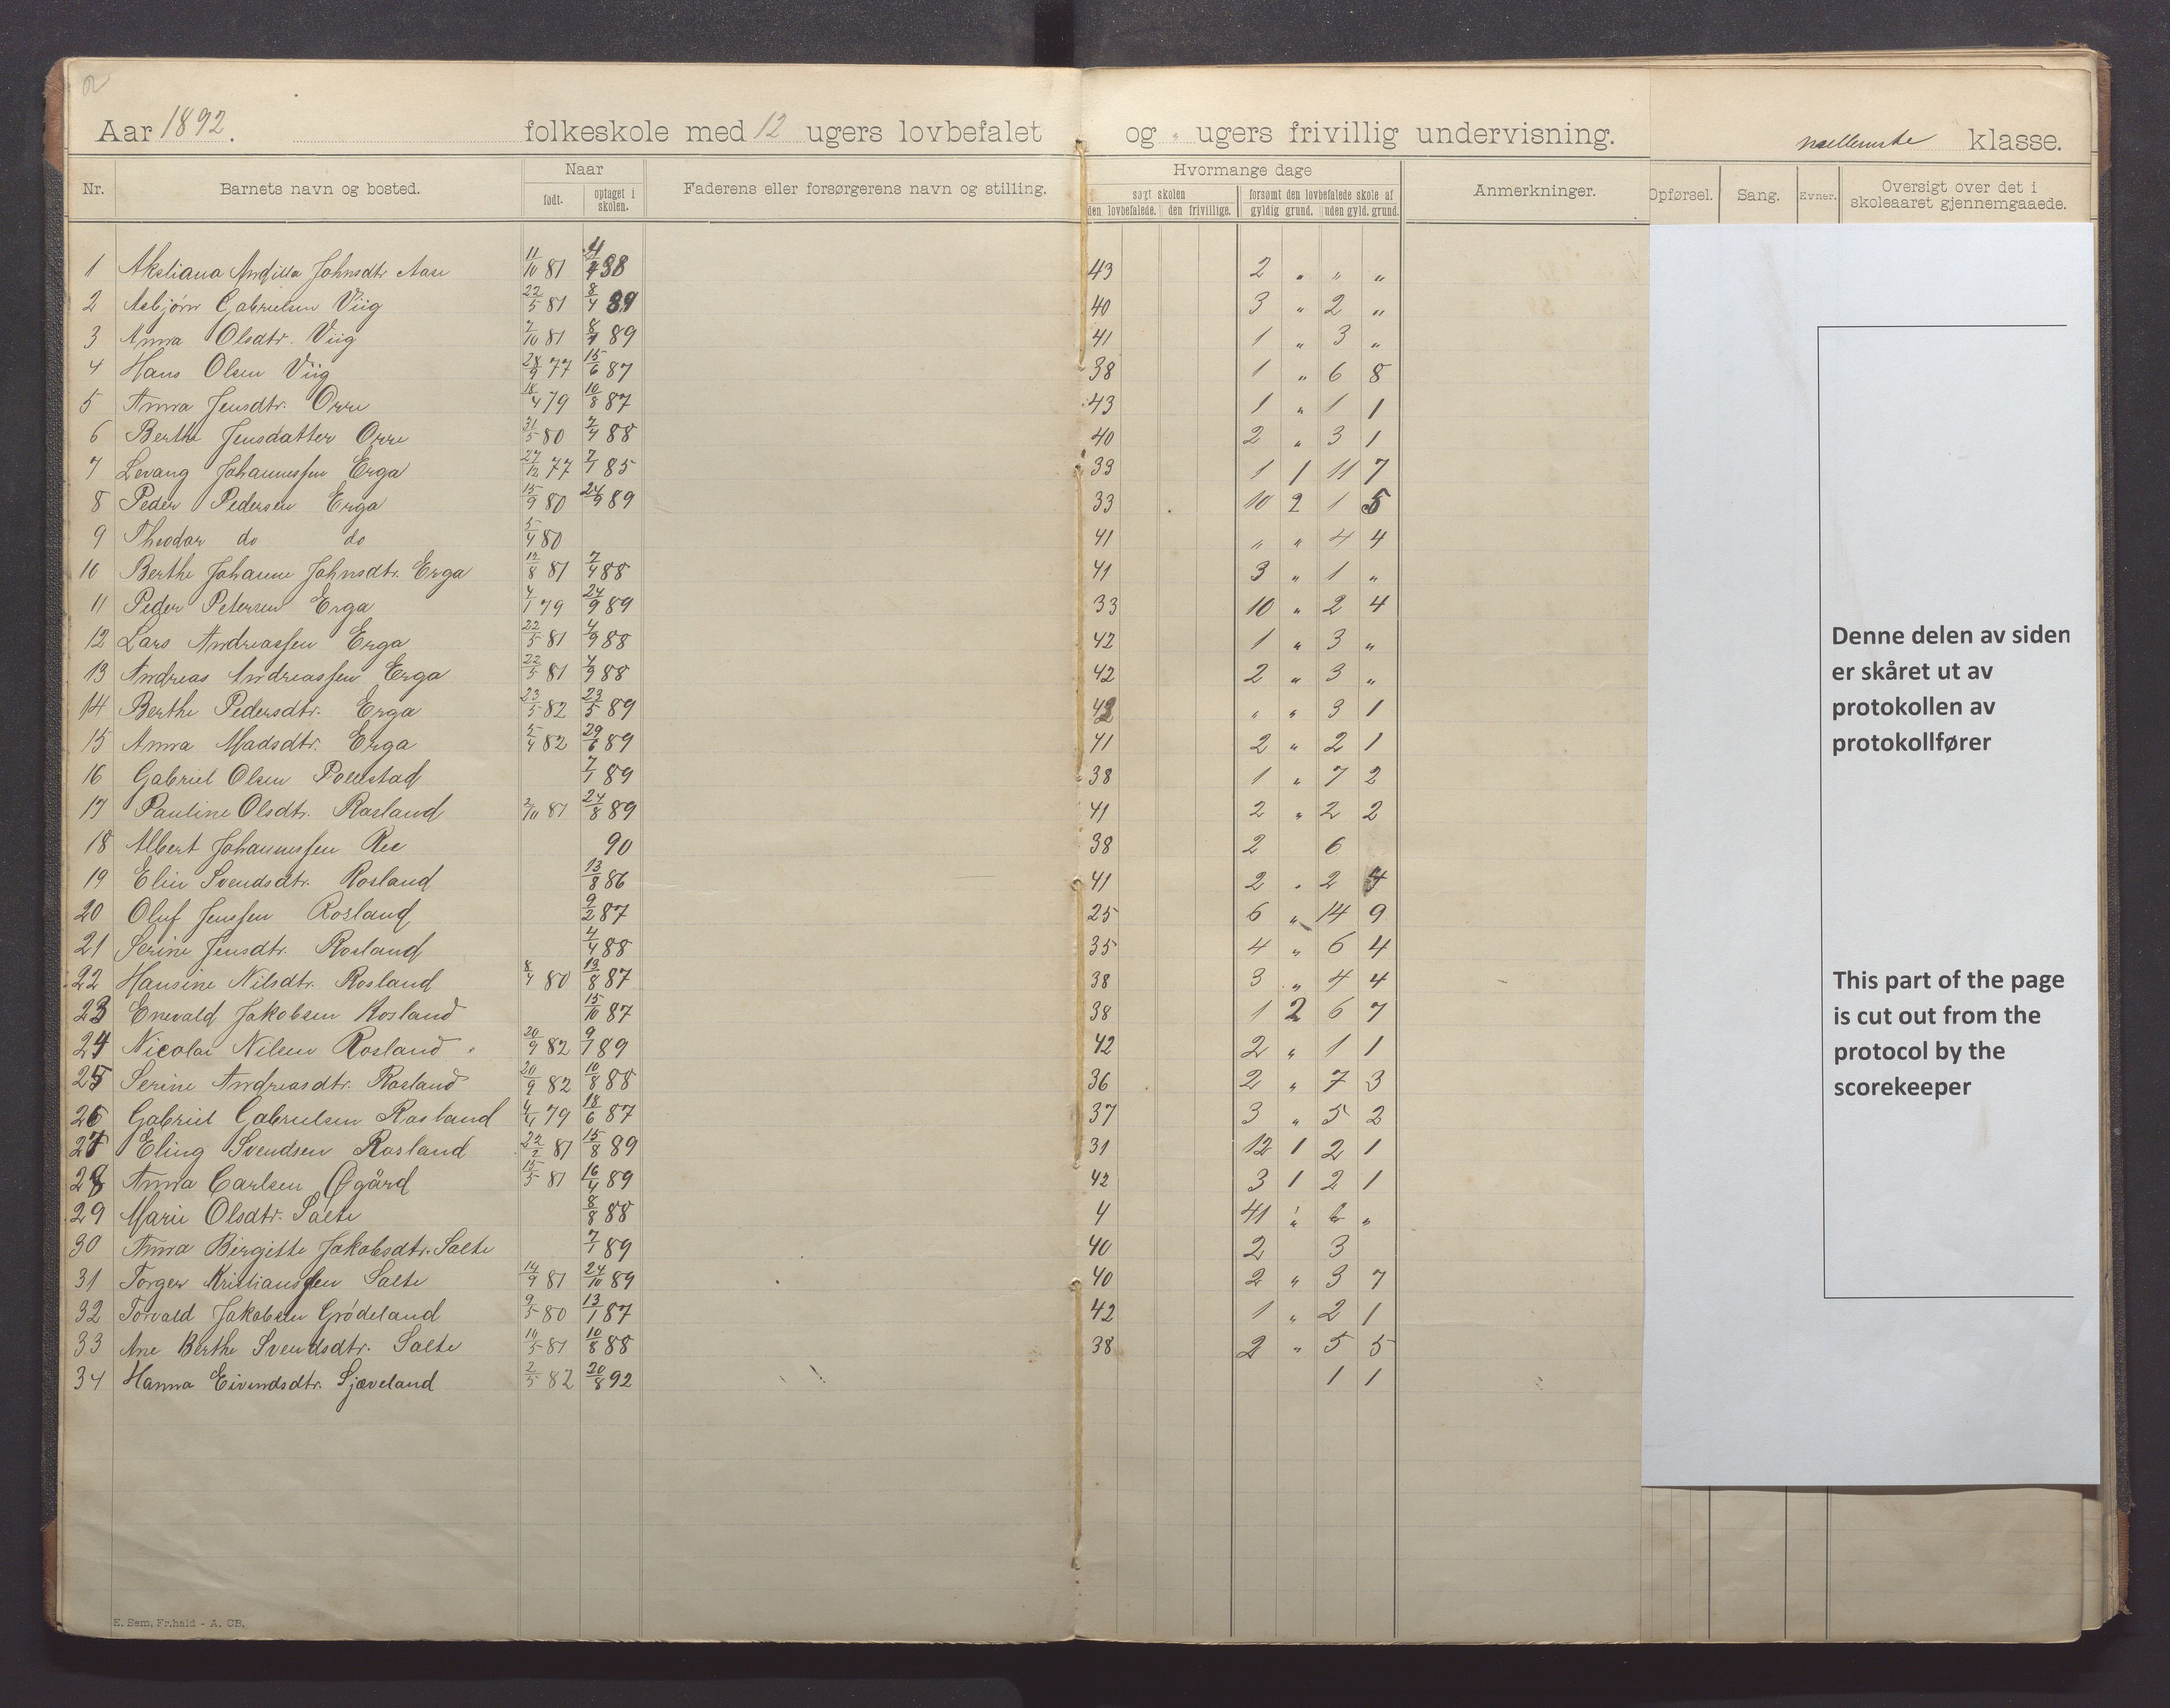 2
Aar 1892. folkeskole med 12 ugers lovbefalet og " ugers frivillig undervisning. mellemste klasse.
Nr. Barnets navn og bosted. Naar Faderens eller forsørgerens navn og stilling. Hvormange dage Anmerkninger. Opførsel. Sang. Evner. Oversigt over det i skoleaaret gjennemgaaede.
født. optaget i skolen. søgt skolen forsømt den lovbefalede skole af
den lovbefalede. den frivillige. gyldig grund. uden gyld. grund.
1 Johnsdtr Aase 11/10 81 88 43 2 " " "
2 Asbjørn Gabrielsen Viig 22/5 81 8/4 89 40 3 " 2 "
3 Anna Olsdtr. Viig 2/10 81 8/4 89 41 1 " 3 "
4 Hans Olsen Viig 28/9 77 15/6 87 38 1 " 6 8
5 Anna Jensdtr. Orre 18/4 79 10/8 87 43 1 " 1 1
6 Berthe Jensdatter Orre 31/5 80 2/4 88 40 2 " 3 1
7 Levang Johannessen Erga 27/12 77 7/1 85 33 1 1 11 7
8 Peder Pedersen Erga 15/9 80 24/9 89 33 10 2 1 5
9 Theodor do do 5/4 80 41 " " 4 4
10 Berthe Johanne Johnsdtr. Erga 12/8 81 2/4 88 41 3 " 1 "
11 Peder Petersen Erga 4/1 79 24/9 89 33 10 " 2 4
12 Lars Andreassen Erga 22/5 81 4/9 88 42 1 " 3 "
13 Andreas Andreassen Erga 22/5 81 4/9 88 42 2 " 3 "
14 Berthe Pedersdtr. Erga 23/5 82 23/5 89 42 " " 3 1
15 Anna Madsdtr. Erga 5/4 82 29/6 89 41 2 " 2 1
16 Gabriel Olsen Pollestad 7/1 89 38 1 " 7 2
17 Pauline Olsdtr. Rosland 2/10 81 24/8 89 41 2 " 2 2
18 Albert Johannessen Ree 90 38 2 6
19 Elin Svendsdtr. Rosland 13/8 86 41 2 " 2 4
20 Oluf Jenssen Rosland 9/2 87 25 6 " 14 9
21 Serine Jensdtr. Rosland 4/4 88 35 4 " 6 4
22 Hansine Nilsdtr. Rosland 8/4 80 13/8 87 38 3 " 4 4
23 Enevald Jakobsen Rosland 15/10 87 38 1 2 6 7
24 Nicolai Nilsen Rosland 20/9 82 9/1 89 42 2 " 1 1
25 Serine Andreasdtr. Rosland 20/9 82 10/8 88 36 2 " 7 3
26 Gabriel Gabrielsen Rosland 4/4 79 18/6 87 37 3 " 5 2
27 Eling Svendsen Rosland 22/2 81 15/8 89 31 12 1 2 1
28 Anna Carlsen Øgård 15/5 81 16/4 89 42 3 1 2 1
29 Marie Olsdtr. Salte 8/8 88 4 41 " "
30 Anna Birgitte Jakobsdtr. Salte 7/1 89 40 2 3
31 Torger Kristianssen Salte 14/9 81 24/10 89 40 2 " 3 7
32 Torvald Jakobsen Grödeland 9/5 80 13/1 87 42 1 " 2 1
33 Ane Berthe Svendsdtr. Salte 10/5 81 10/8 88 38 2 " 5 5
34 Hanna Eivindsdtr. Sjæveland 2/5 82 20/8 92 1 1
Denne delen av siden
er skåret ut av
protokollen av
protokollfører
This part of the page
is cut out from the
protocol by the
scorekeeper
E. Sem, Fr.hald - A. CB.